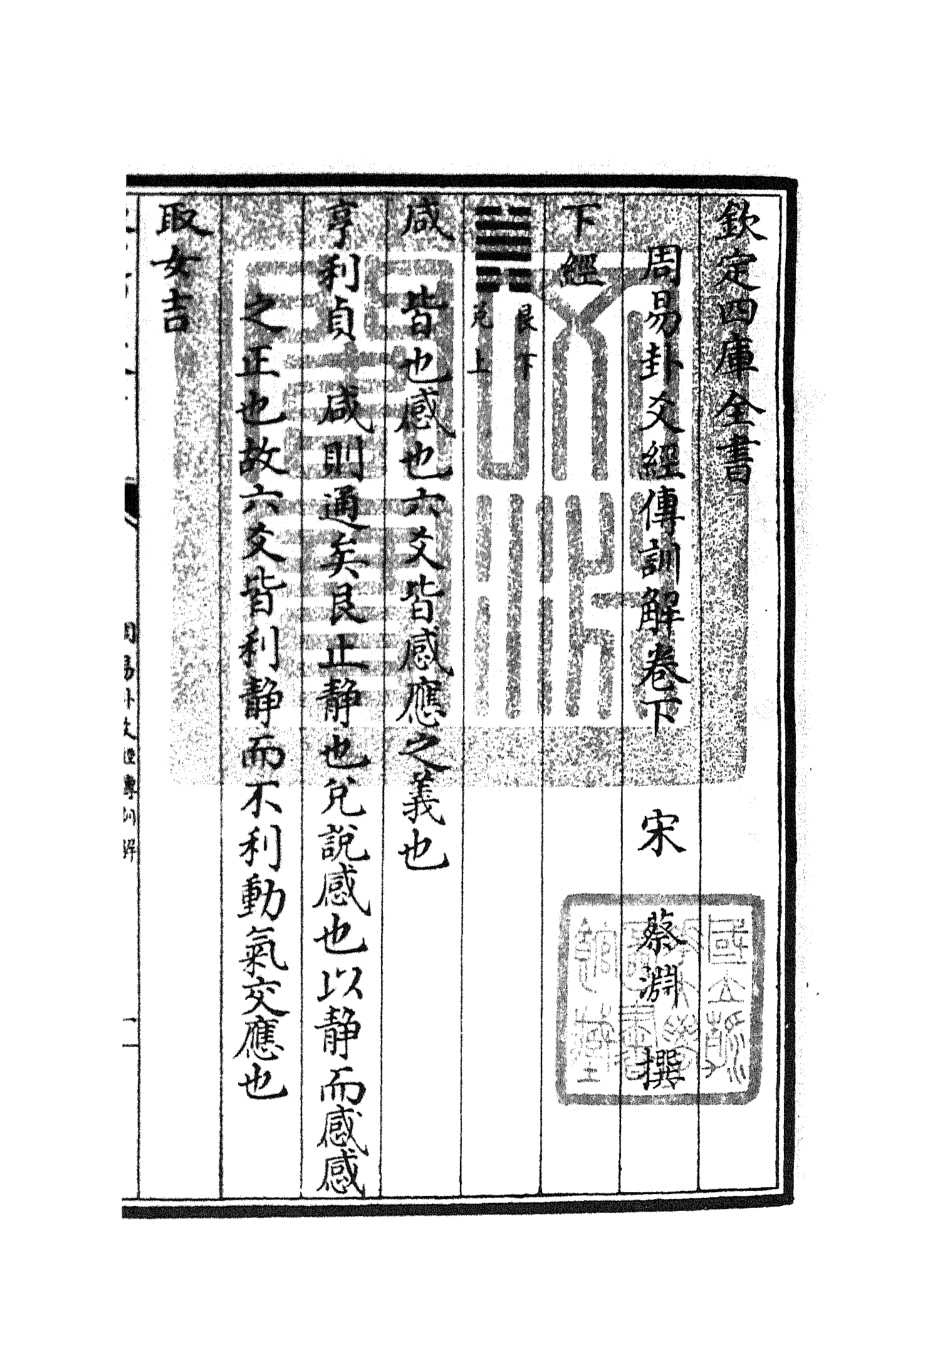 欽定四庫全書
周易卦爻經傳訓解卷下　宋　蔡淵　撰
下經
䷞艮下兌上
咸　皆也感也六爻皆感應之義也
亨利貞　咸則通矣艮止靜也兌說感也以靜而感感
之正也故六爻皆利靜而不利動氣交應也
取女吉
周易卦爻經傳訓解